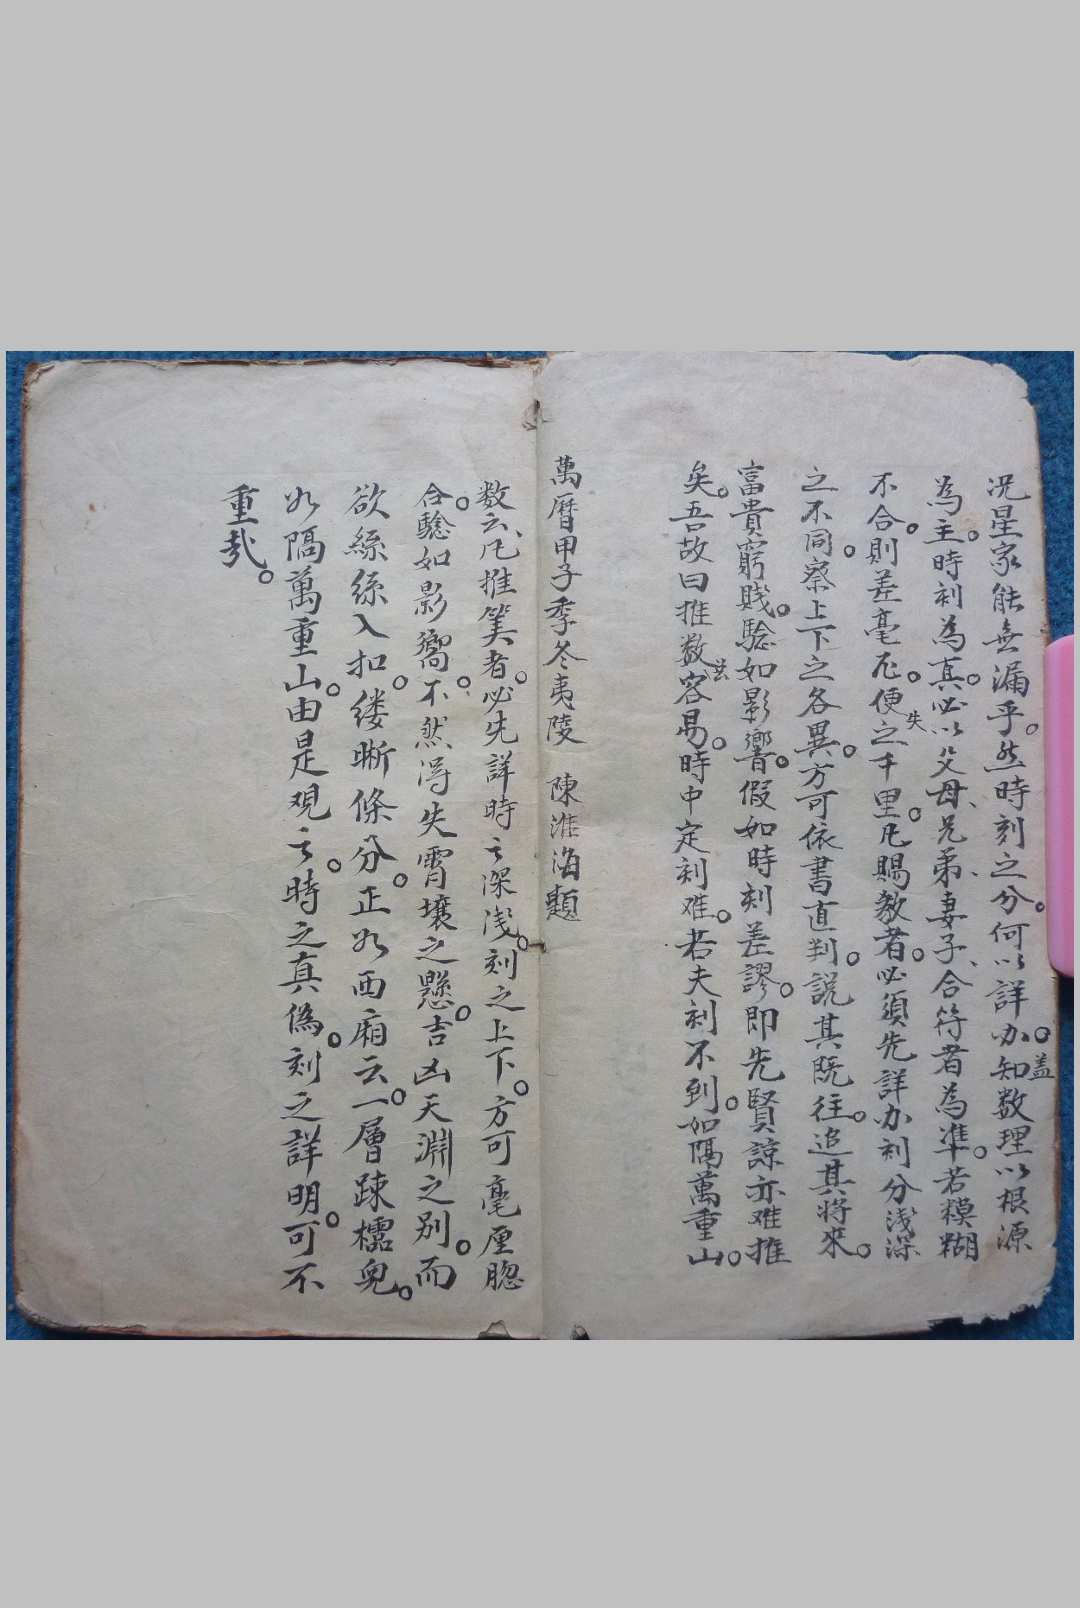 况星家能無漏乎。然時刻之分。何以詳办。盖知数理以根源
為主。時刻為真。必以父母、兄弟、妻子、合符者為準。若糢糊
不合。則差毫厘。便失之千里。凡賜教者。必須先詳办刻分浅深
之不同。察上下之各異。方可依書直判。説其既往。追其將來。
富貴窮賤。騐如影響。假如時刻差謬。即先賢諒亦难推
矣。吾故曰推数甚容易。時中定刻难。若夫刻不到。如隔萬重山。
萬曆甲子季冬夷陵 陳淮海題
数云、凡推筭者。必先詳時之深浅。刻之上下。方可毫厘脗
合。騐如影嚮。不然得失霄壤之懸。吉凶天淵之别。而
欲絲絲入扣。缕晰條分。正如西廂云。一層踈櫺兒。
如隔萬重山。由是观之。時之真偽。刻之詳明。可不
重哉。